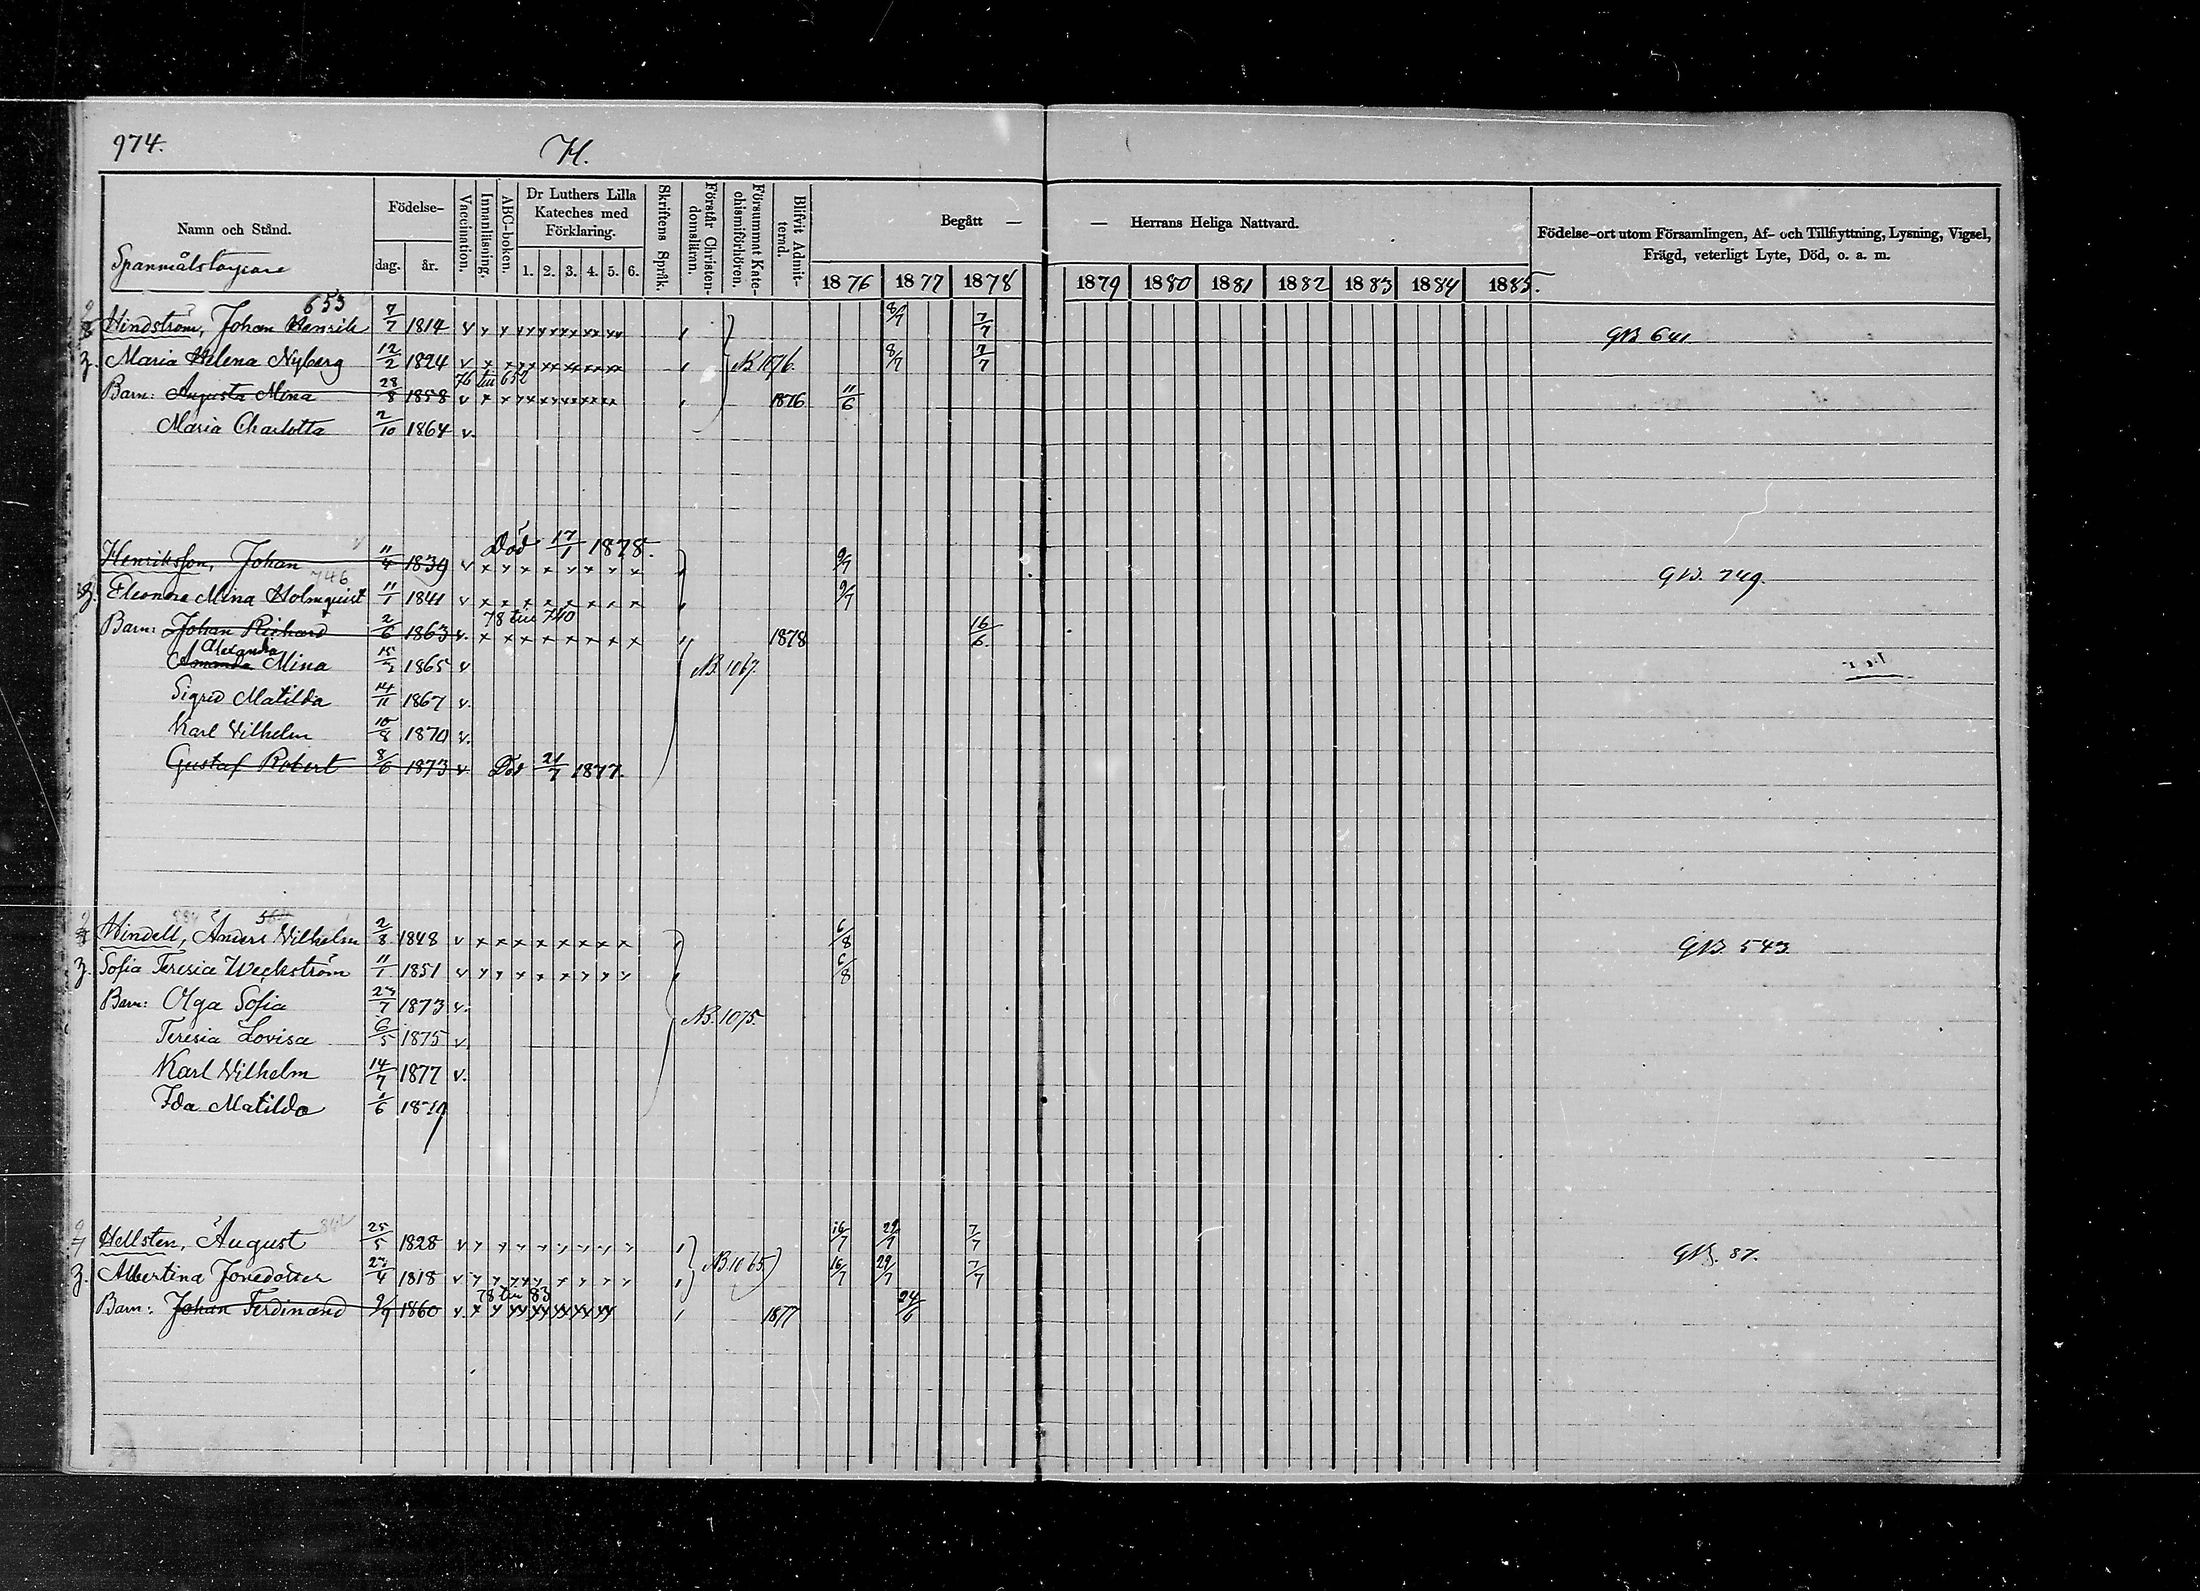 974.
H.
Namn och Stånd.
Spanmålstagare
Födelse-
dag. år.
Vaccination.
Innanläsning.
ABC-boken.
Dr Luthers Lilla
Kateches med
Förklaring.
1. 2. 3. 4. 5. 6.
Skriftens Språk.
Förstår Christen-
domsläran.
Försummat Kate-
chismiförhören.
Blifvit Admit-
terad.
Begått —
— Herrans Heliga Nattvard.
1876 1877 1878 1879 1880 1881 1882 1883 1884 1885.
Födelse-ort utom Församlingen, Af- och Tillflyttning, Lysning, Vigsel,
Frägd, veterligt Lyte, Död, o. a. m.
653
Hindström, Johan Henrik 7/7 1814 v 8/7 7/7 GB 641
Maria Helena Nyberg 12/2 1824 v NB 1076. 8/7 7/7
76 till 652
Barn: Augusta Mina 28/8 1858 v 1876 11/6
Maria Charlotta 2/10 1864 v.
Död 17/1 1878.
Henriksson, Johan 11/4 1839 v 9/7 GB. 749.
746
Eleonora Mina Holmquist 11/1 1841 v 9/7
78 till 740
Barn: Johan Richard 2/6 1863 v. 1878 16/6
Alexandra
Amanda Mina 1865 v NB. 1067.
Sigrid Matilda 14/11 1867 v.
Karl Vilhelm 10/8 1870 v.
Gustaf Robert 8/6 1873 v Död 21/7 1877.
Hindell, Anders Vilhelm 2/8 1848 v 6/8 GB. 543.
Sofia Teresia Weckström 11/1 1851 v 6/8
Barn: Olga Sofia 23/7 1873 v.
Teresia Lovisa 6/5 1875 v. NB. 1075.
Karl Vilhelm 14/7 1877 v.
Ida Matilda 1/6 1879
Hellsten, August 25/5 1828 v 16/7 29/7 7/7 GB. 87.
Albertina Jonedotter 23/4 1818 v NB 1065 16/7 29/7 7/7
78 till 83
Barn: Johan Ferdinand 9/9 1860 v. 1877 24/6